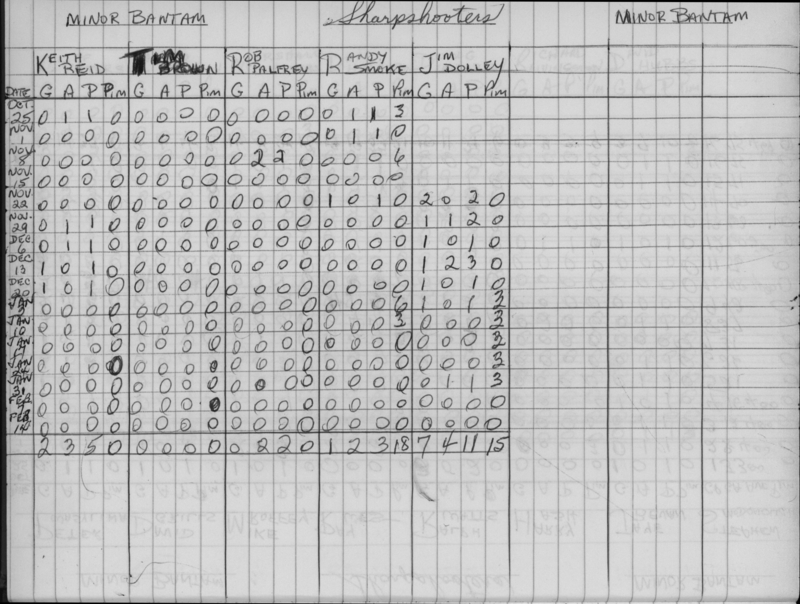 MINOR BANTAM Sharpshooters MINOR BANTAM
KEITH REID TIM BROWN ROB PALFREY RANDY SMOKE JIM DOLLEY
DATE G A P Pim G A P Pim G A P Pim G A P Pim G A P Pim
OCT. 25 0 1 1 0 0 0 0 0 0 0 0 0 0 1 1 3
NOV 1 0 0 0 0 0 0 0 0 0 0 0 0 0 1 1 0
NOV 8 0 0 0 0 0 0 0 0 0 2 2 0 0 0 0 6
NOV 15 0 0 0 0 0 0 0 0 0 0 0 0 0 0 0 0
NOV 22 0 0 0 0 0 0 0 0 0 0 0 0 1 0 1 0 2 0 2 0
NOV. 29 0 1 1 0 0 0 0 0 0 0 0 0 0 0 0 0 1 1 2 0
DEC. 6 0 1 1 0 0 0 0 0 0 0 0 0 0 0 0 0 1 0 1 0
DEC 13 1 0 1 0 0 0 0 0 0 0 0 0 0 0 0 0 1 2 3 0
DEC 20 1 0 1 0 0 0 0 0 0 0 0 0 0 0 0 0 1 0 1 0
JAN 3 0 0 0 0 0 0 0 0 0 0 0 0 0 0 0 6 1 0 1 3
JAN 10 0 0 0 0 0 0 0 0 0 0 0 0 0 0 0 3 0 0 0 3
JAN. 0 0 0 0 0 0 0 0 0 0 0 0 0 0 0 0 0 0 0 3
JAN 0 0 0 0 0 0 0 0 0 0 0 0 0 0 0 0 0 0 0 3
JAN 31 0 0 0 0 0 0 0 0 0 0 0 0 0 0 0 0 0 1 1 3
FEB 7 0 0 0 0 0 0 0 0 0 0 0 0 0 0 0 0 0 0 0 0
FEB. 14 0 0 0 0 0 0 0 0 0 0 0 0 0 0 0 0 0 0 0 0
2 3 5 0 0 0 0 0 0 2 2 0 1 2 3 18 7 4 11 15